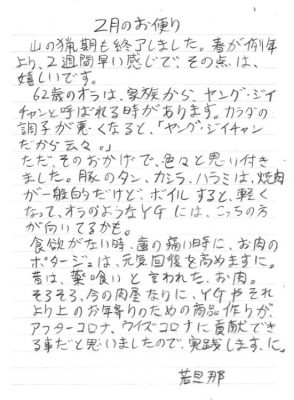 2月のお便り
山の猟期も終了しました。春が例年
より、2週間早い感じで、その点は、
嬉しいです。
62歳のオラは、家族から、ヤング・ジイ
チャンと呼ばれる時があります。カラダの
調子が悪くなると、「ヤング・ジイチャン
だから云々。」
ただ、そのおかげで、色々と思い付き
ました。豚のタン、カシラ、ハラミは、焼肉
が一般的だけど、ボイルすると、軽く
なって、オラのようなYGには、こっちの方
が向いてるかも。
食欲がない時、歯の痛い時に、お肉の
ポタージュは、元気回復を高めますに。
昔は、薬喰いと言われた、お肉。
そろそろ、今の肉屋なりに、YGやそれ
より上のお年寄りのための商品作りが
アフターコロナ、ウイズコロナに貢献でき
る事だと思いましたので、実践します、に。
若旦那